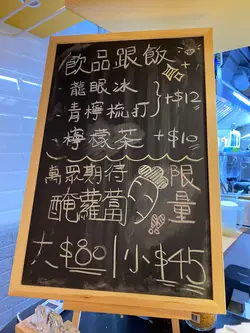 飲品跟飯
·龍眼冰
·青檸梳打 } +$12
·檸檬茶 +$10
萬眾期待 限量
醃蘿蔔
大$80 | 小$45